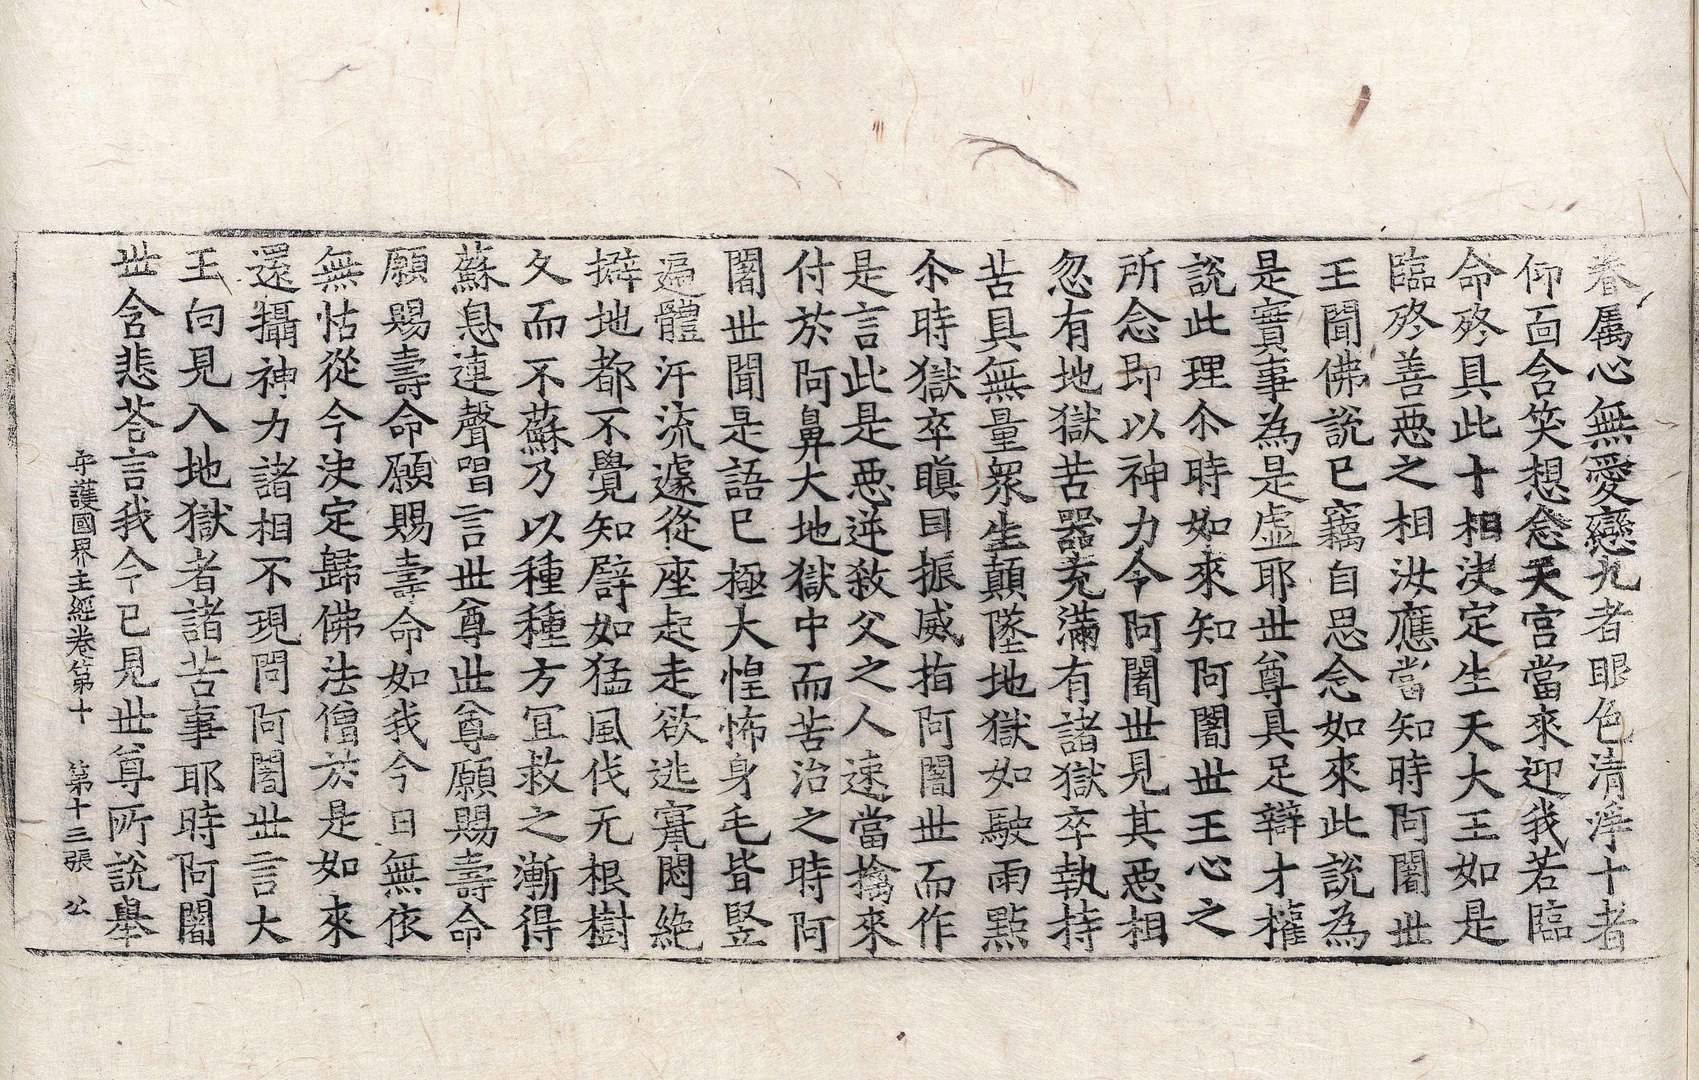 眷属心無愛戀九者眼色清淨十者
仰面含笑想念天宫當來迎我若臨
命終具此十相决定生天大王如是
臨終善惡之相汝應當知時阿闍世
王聞佛說已竊自思念如來此說為
是實事為是虛耶世尊具足辯才權
說此理尒時如來知阿闍世王心之
所念即以神力令阿闍世見其惡相
忽有地獄苦器充滿有諸獄卒執持
苦具無量衆生顛墜地獄如駛雨點
尒時獄卒瞋目振威指阿闍世而作
是言此是惡逆煞父之人速當擒來
付於阿鼻大地獄中而苦治之時阿
闍世聞是語已極大惶怖身毛皆竪
遍體汗流遽從座起走欲逃竄悶絶
擗地都不覺知譬如猛風伐无根樹
久而不蘇乃以種種方冝救之漸得
蘇息連聲唱言世尊世尊願賜壽命
願賜壽命願賜壽命如我今日無依
無怙從今决定歸佛法僧於是如來
還攝神力諸相不現問阿闍世言大
王向見入地獄者諸苦事耶時阿闍
世含悲荅言我今已見世尊所說舉
守護國界主經卷第十　第十三張　公